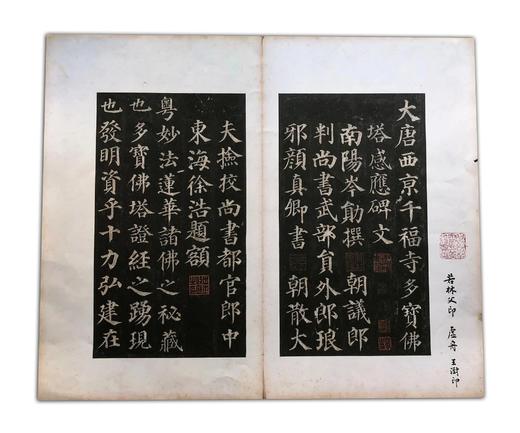 若林父印 虛舟 王澍印
大唐西京千福寺多寶佛
塔感應碑文
南陽岑勛撰 朝議郎
判尚書武部貟外郎琅
邪顏真卿書 朝散大
夫撿校尚書都官郎中
東海徐浩題額
粵妙法蓮華諸佛之秘藏
也多寶佛塔證經之踴現
也發明資乎十力弘建在